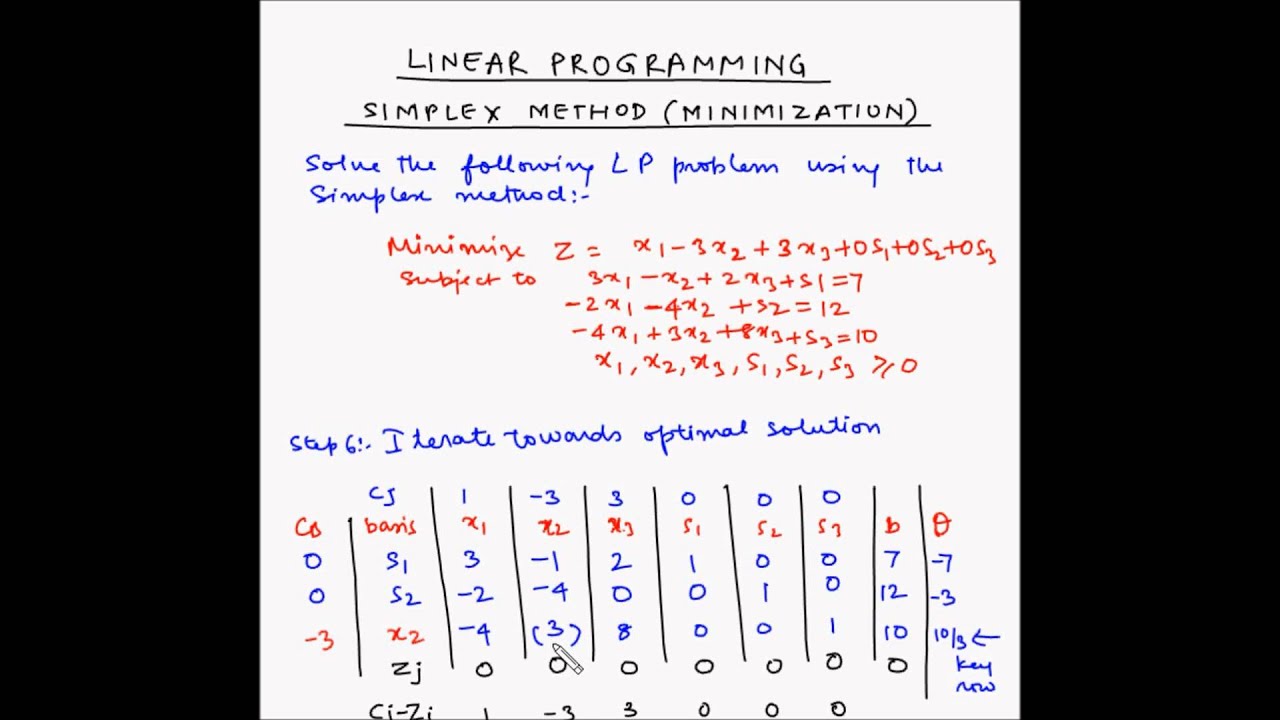 LINEAR PROGRAMMING
SIMPLEX METHOD (MINIMIZATION)
Solve the following LP problem using the
Simplex method:-
Minimize Z = x1 - 3x2 + 3x3 + 0S1 + 0S2 + 0S3
Subject to 3x1 - x2 + 2x3 + S1 = 7
-2x1 - 4x2 + S2 = 12
-4x1 + 3x2 + 8x3 + S3 = 10
x1, x2, x3, S1, S2, S3 ≥ 0
Step 6:- Iterate towards optimal solution
Cj 1 -3 3 0 0 0
CB basis x1 x2 x3 S1 S2 S3 b θ
0 S1 3 -1 2 1 0 0 7 -7
0 S2 -2 -4 0 0 1 0 12 -3
-3 x2 -4 (3) 8 0 0 1 10 10/3 ←
Zj 0 0 0 0 0 0 0 key
row
Cj-Zj 1 -3 3 0 0 0